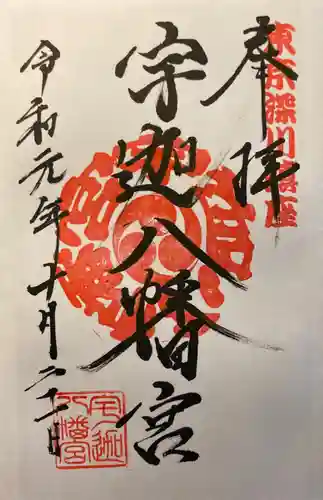 奉拝
東京深川鎮座
宇迦八幡宮
令和元年十月二十一日
宇迦八幡宮